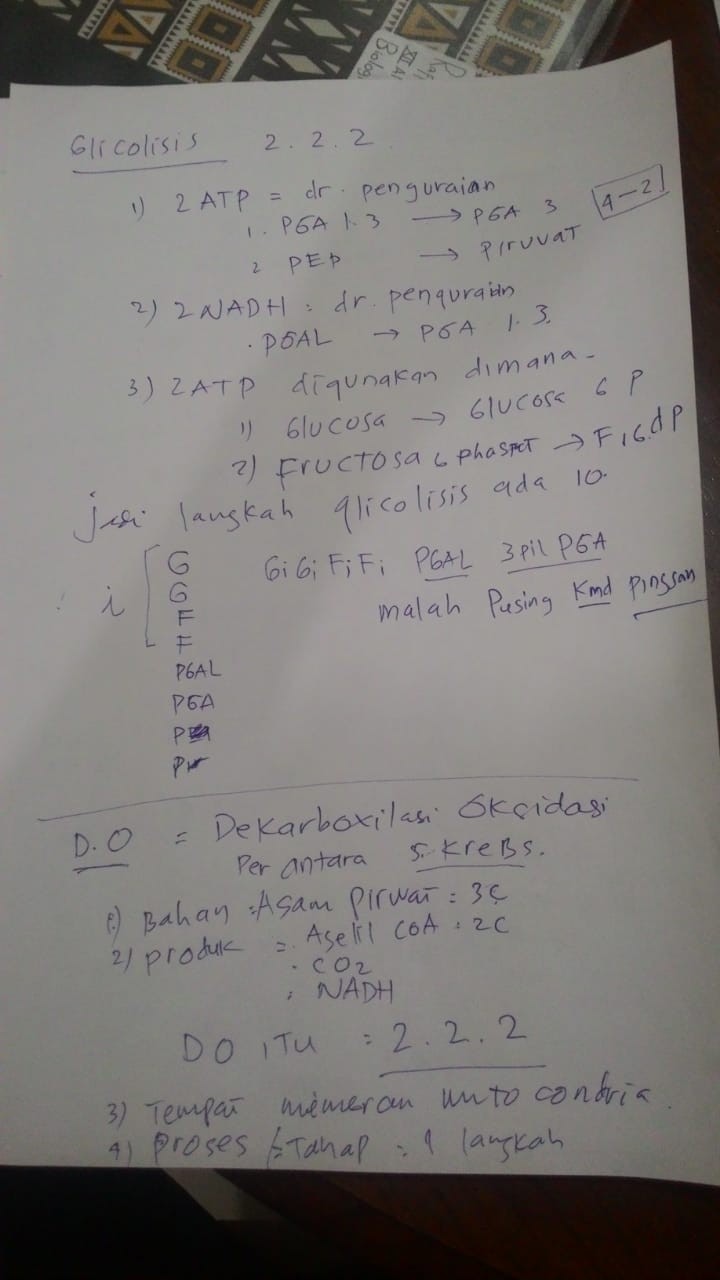 Rafi
XII AI
Biologi
Glicolisis 2.2.2
1) 2 ATP = dr. penguraian
1. PGA 1.3 → PGA 3 4-2
2 PEP → PIRUVAT
2) 2 NADH = dr. penguraian
. PGAL → PGA 1.3.
3) 2 ATP digunakan dimana-
1) Glucosa → Glucosa 6 P
2) Fructosa 6 phaspat → F 1 6.dP
jadi langkah glicolisis ada 10.
G Gi Gi Fi Fi PGAL 3 pil PGA
i G malah Pusing Kmd Pingsan
F
F
PGAL
PGA
D.O = Dekarboxilasi Oksidasi
Per antara S. KreBs.
1.) Bahan : Asam Piruvat = 3C
2) Produk = Asetil COA : 2C
. CO2
: NADH
DO ITU = 2.2.2
3) Tempat memeran mito condria.
4) Proses / Tahap : 1 langkah